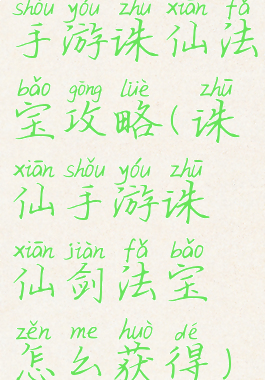 shǒu yóu zhū xiān fǎ
手游诛仙法
bǎo gōng lüè zhū
宝攻略(诛
xiān shǒu yóu zhū
仙手游诛
xiān jiàn fǎ bǎo
仙剑法宝
zěn me huò dé
怎么获得)